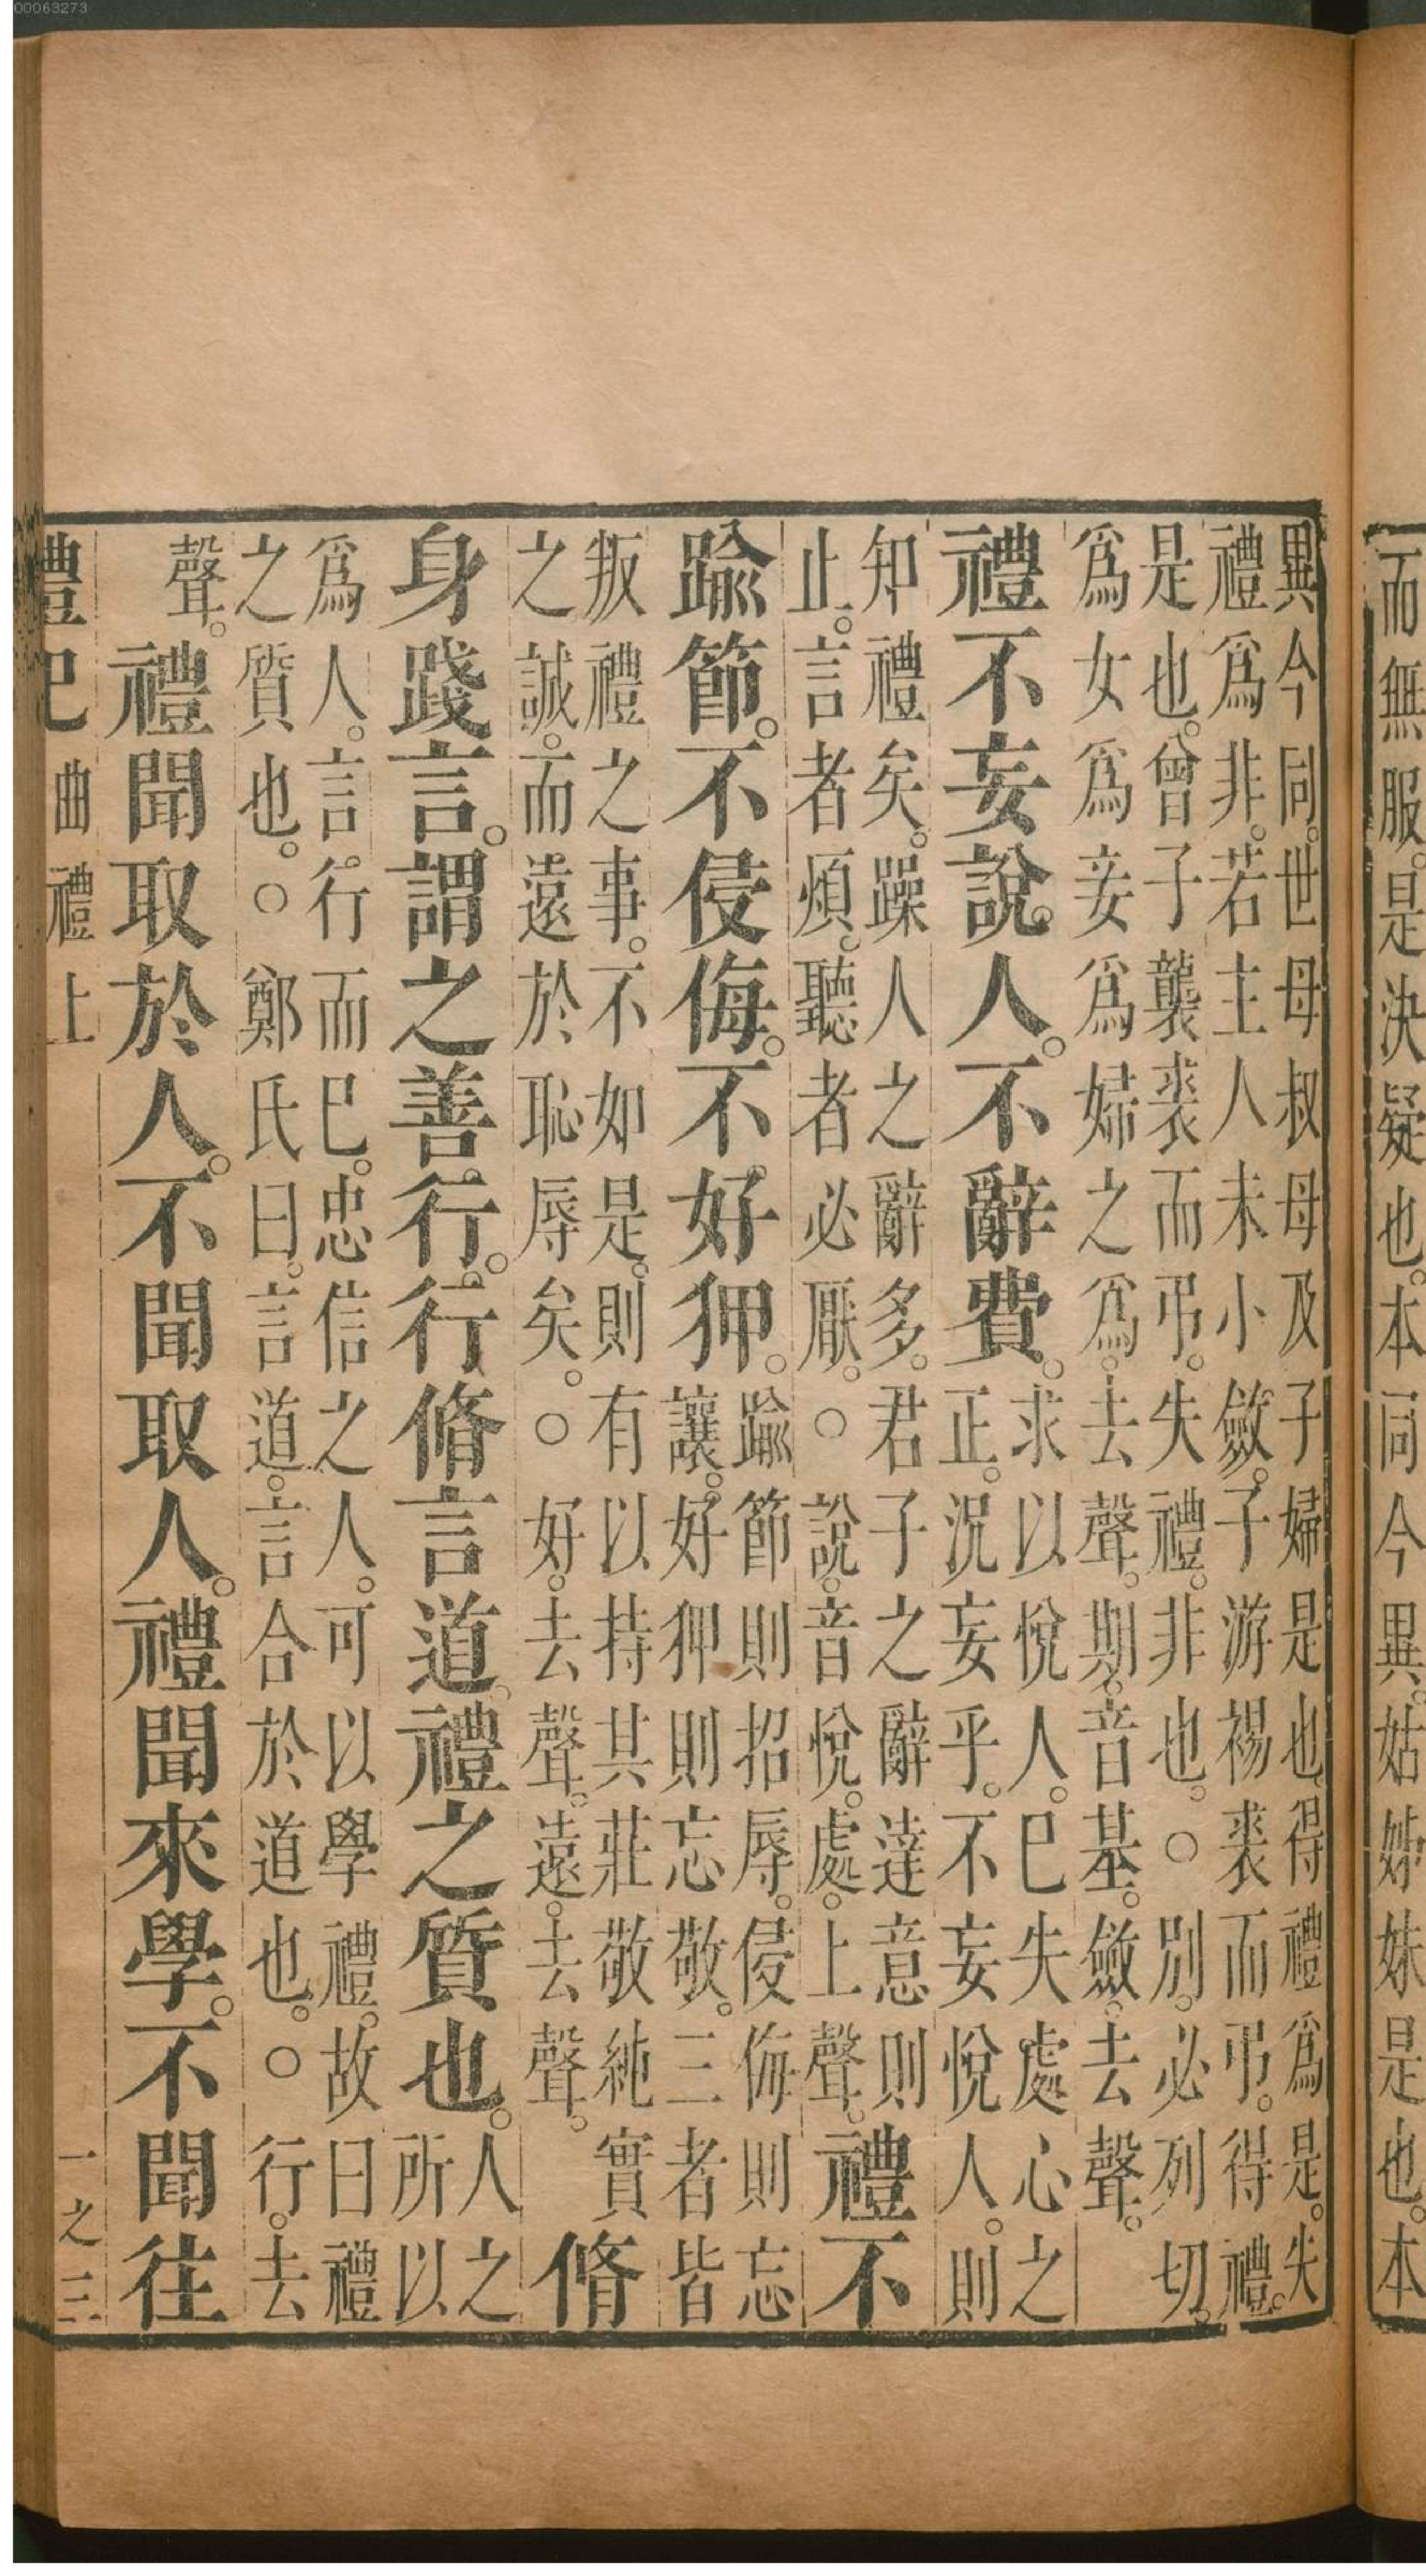 00063273
而無服。是決疑也。本同今異。姑姊妹是也。本
異今同。世母叔母及子婦是也。得禮爲是。失
禮爲非。若主人未小斂。子游裼裘而弔。得禮。
是也。曾子襲裘而弔。失禮。非也。○別。必列切。
爲女爲妾爲婦之爲。去聲。期。音基。斂。去聲。
禮不妄說人。不辭費。
求以悅人。巳失處心之
正。況妄乎。不妄悅人。則
知禮矣。躁人之辭多。君子之辭達意則
止。言者煩。聽者必厭。○說。音悅。處。上聲。
禮不
踰節。不侵侮。不好狎。
踰節則招辱。侵侮則忘
讓。好狎則忘敬。三者皆
叛禮之事。不如是。則有以持其莊敬純實
之誠。而遠於恥辱矣。○好。去聲。遠。去聲。
脩
身踐言。謂之善行。行脩言道。禮之質也。
人之
所以
爲人。言行而巳。忠信之人。可以學禮。故曰禮
之質也。○鄭氏曰。言道。言合於道也。○行。去
聲。
禮聞取於人。不聞取人。禮聞來學。不聞往
禮記 曲禮上 一之三